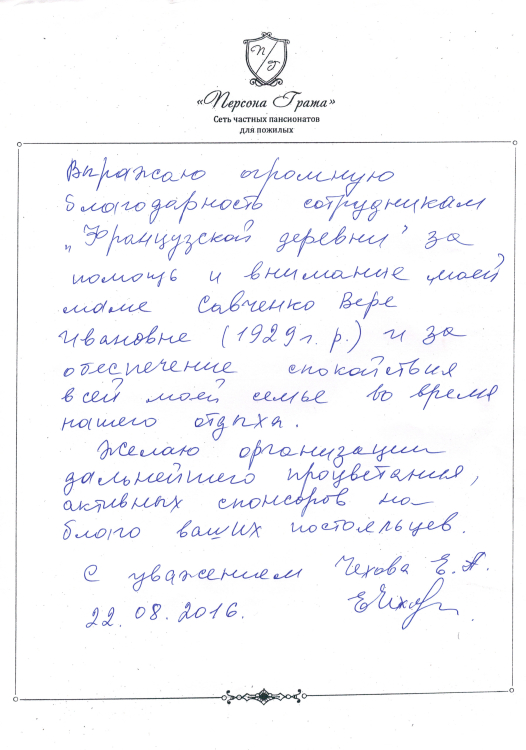 П Г
«Персона Грата»
Сеть частных пансионатов
для пожилых
Выражаю огромную
благодарность сотрудникам
„Французской деревни" за
помощь и внимание моей
маме Савченко Вере
Ивановне (1929 г. р.) и за
обеспечение спокойствия
всей моей семье во время
нашего отдыха.
Желаю организации
дальнейшего процветания,
активных спонсоров на
благо ваших постояльцев.
С уважением Чехова Е. А.
22.08.2016.